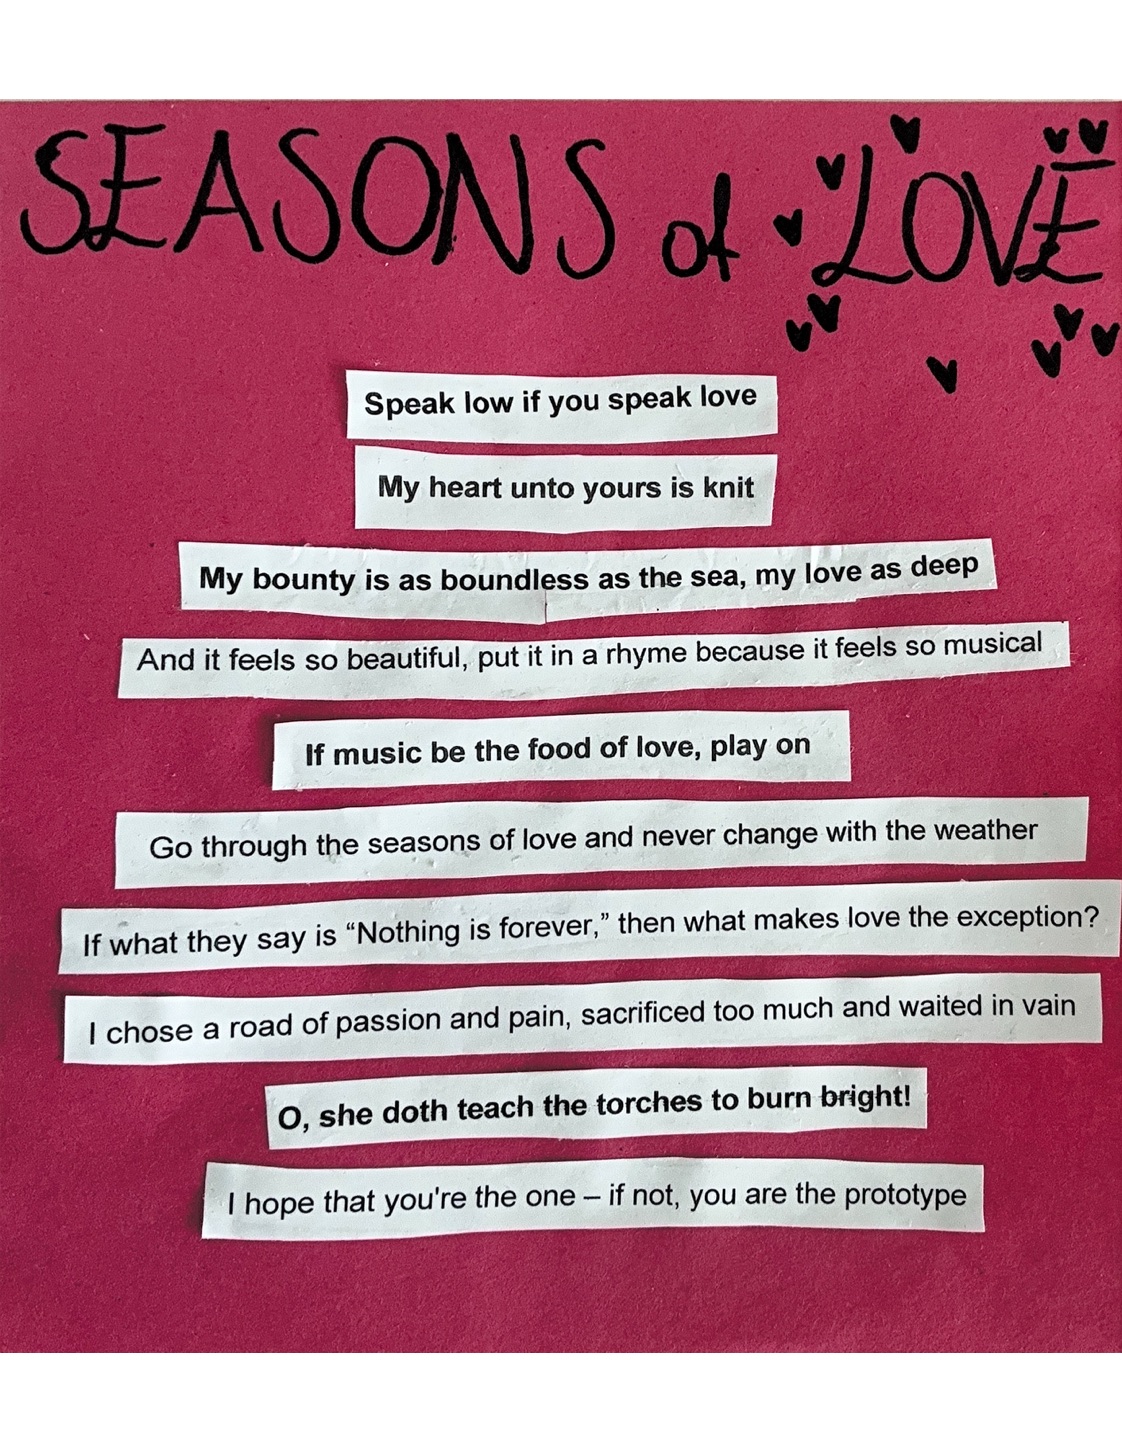 SEASONS of LOVE
Speak low if you speak love
My heart unto yours is knit
My bounty is as boundless as the sea, my love as deep
And it feels so beautiful, put it in a rhyme because it feels so musical
If music be the food of love, play on
Go through the seasons of love and never change with the weather
If what they say is “Nothing is forever,” then what makes love the exception?
I chose a road of passion and pain, sacrificed too much and waited in vain
O, she doth teach the torches to burn bright!
I hope that you're the one – if not, you are the prototype